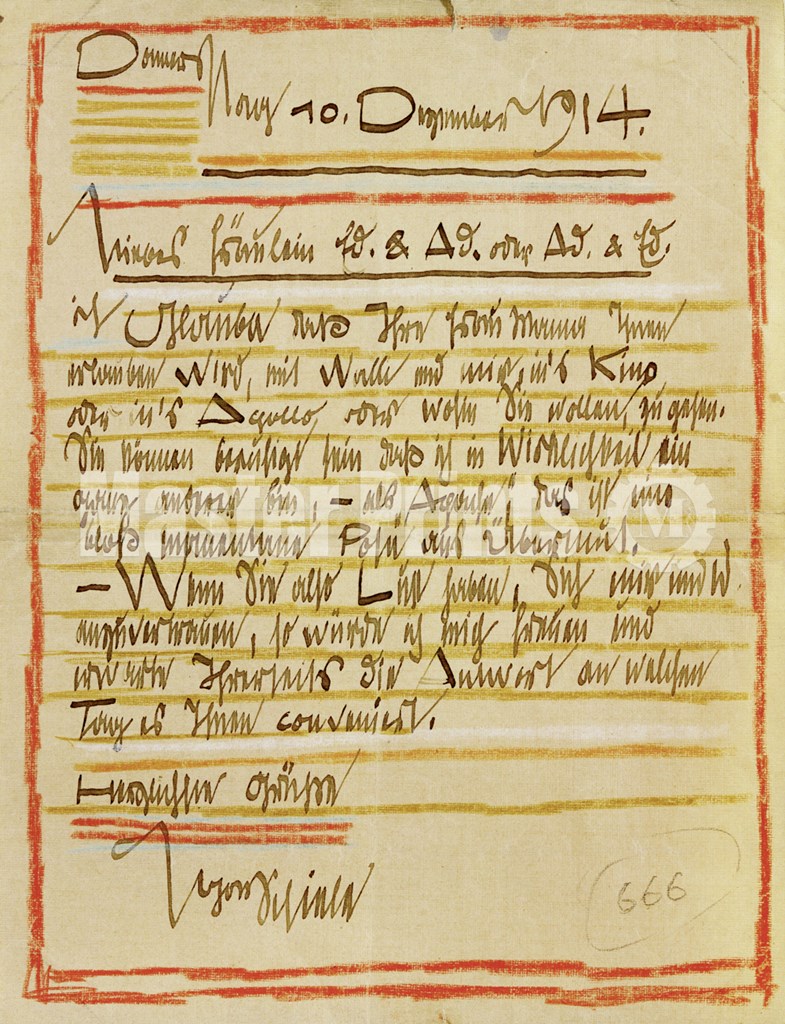 Donners
tag 10. Dezember 1914.
Liebes Fräulein Ed. & Ad. oder Ad. & Ed.
ich Glaube daß Ihre Frau Mama Ihnen
erlauben Wird, mit Walli und mir, in's Kino
oder in's Apollo, oder wohin Sie wollen, zu gehen.
Sie können beruhigt sein daß ich in Wirklichkeit ein
ganz anderer bin, – als Apache", das ist eine
bloß momentane Pose aus Übermut.
– Wenn Sie also Lust haben, Sich mir und W.
anzuvertrauen, so würde ich mich freuen und
erwarte Ihrerseits die Antwort an welchen
Tag es Ihnen conveniert.
Herzlichste Grüße
Egon Schiele
666
MasterPrints